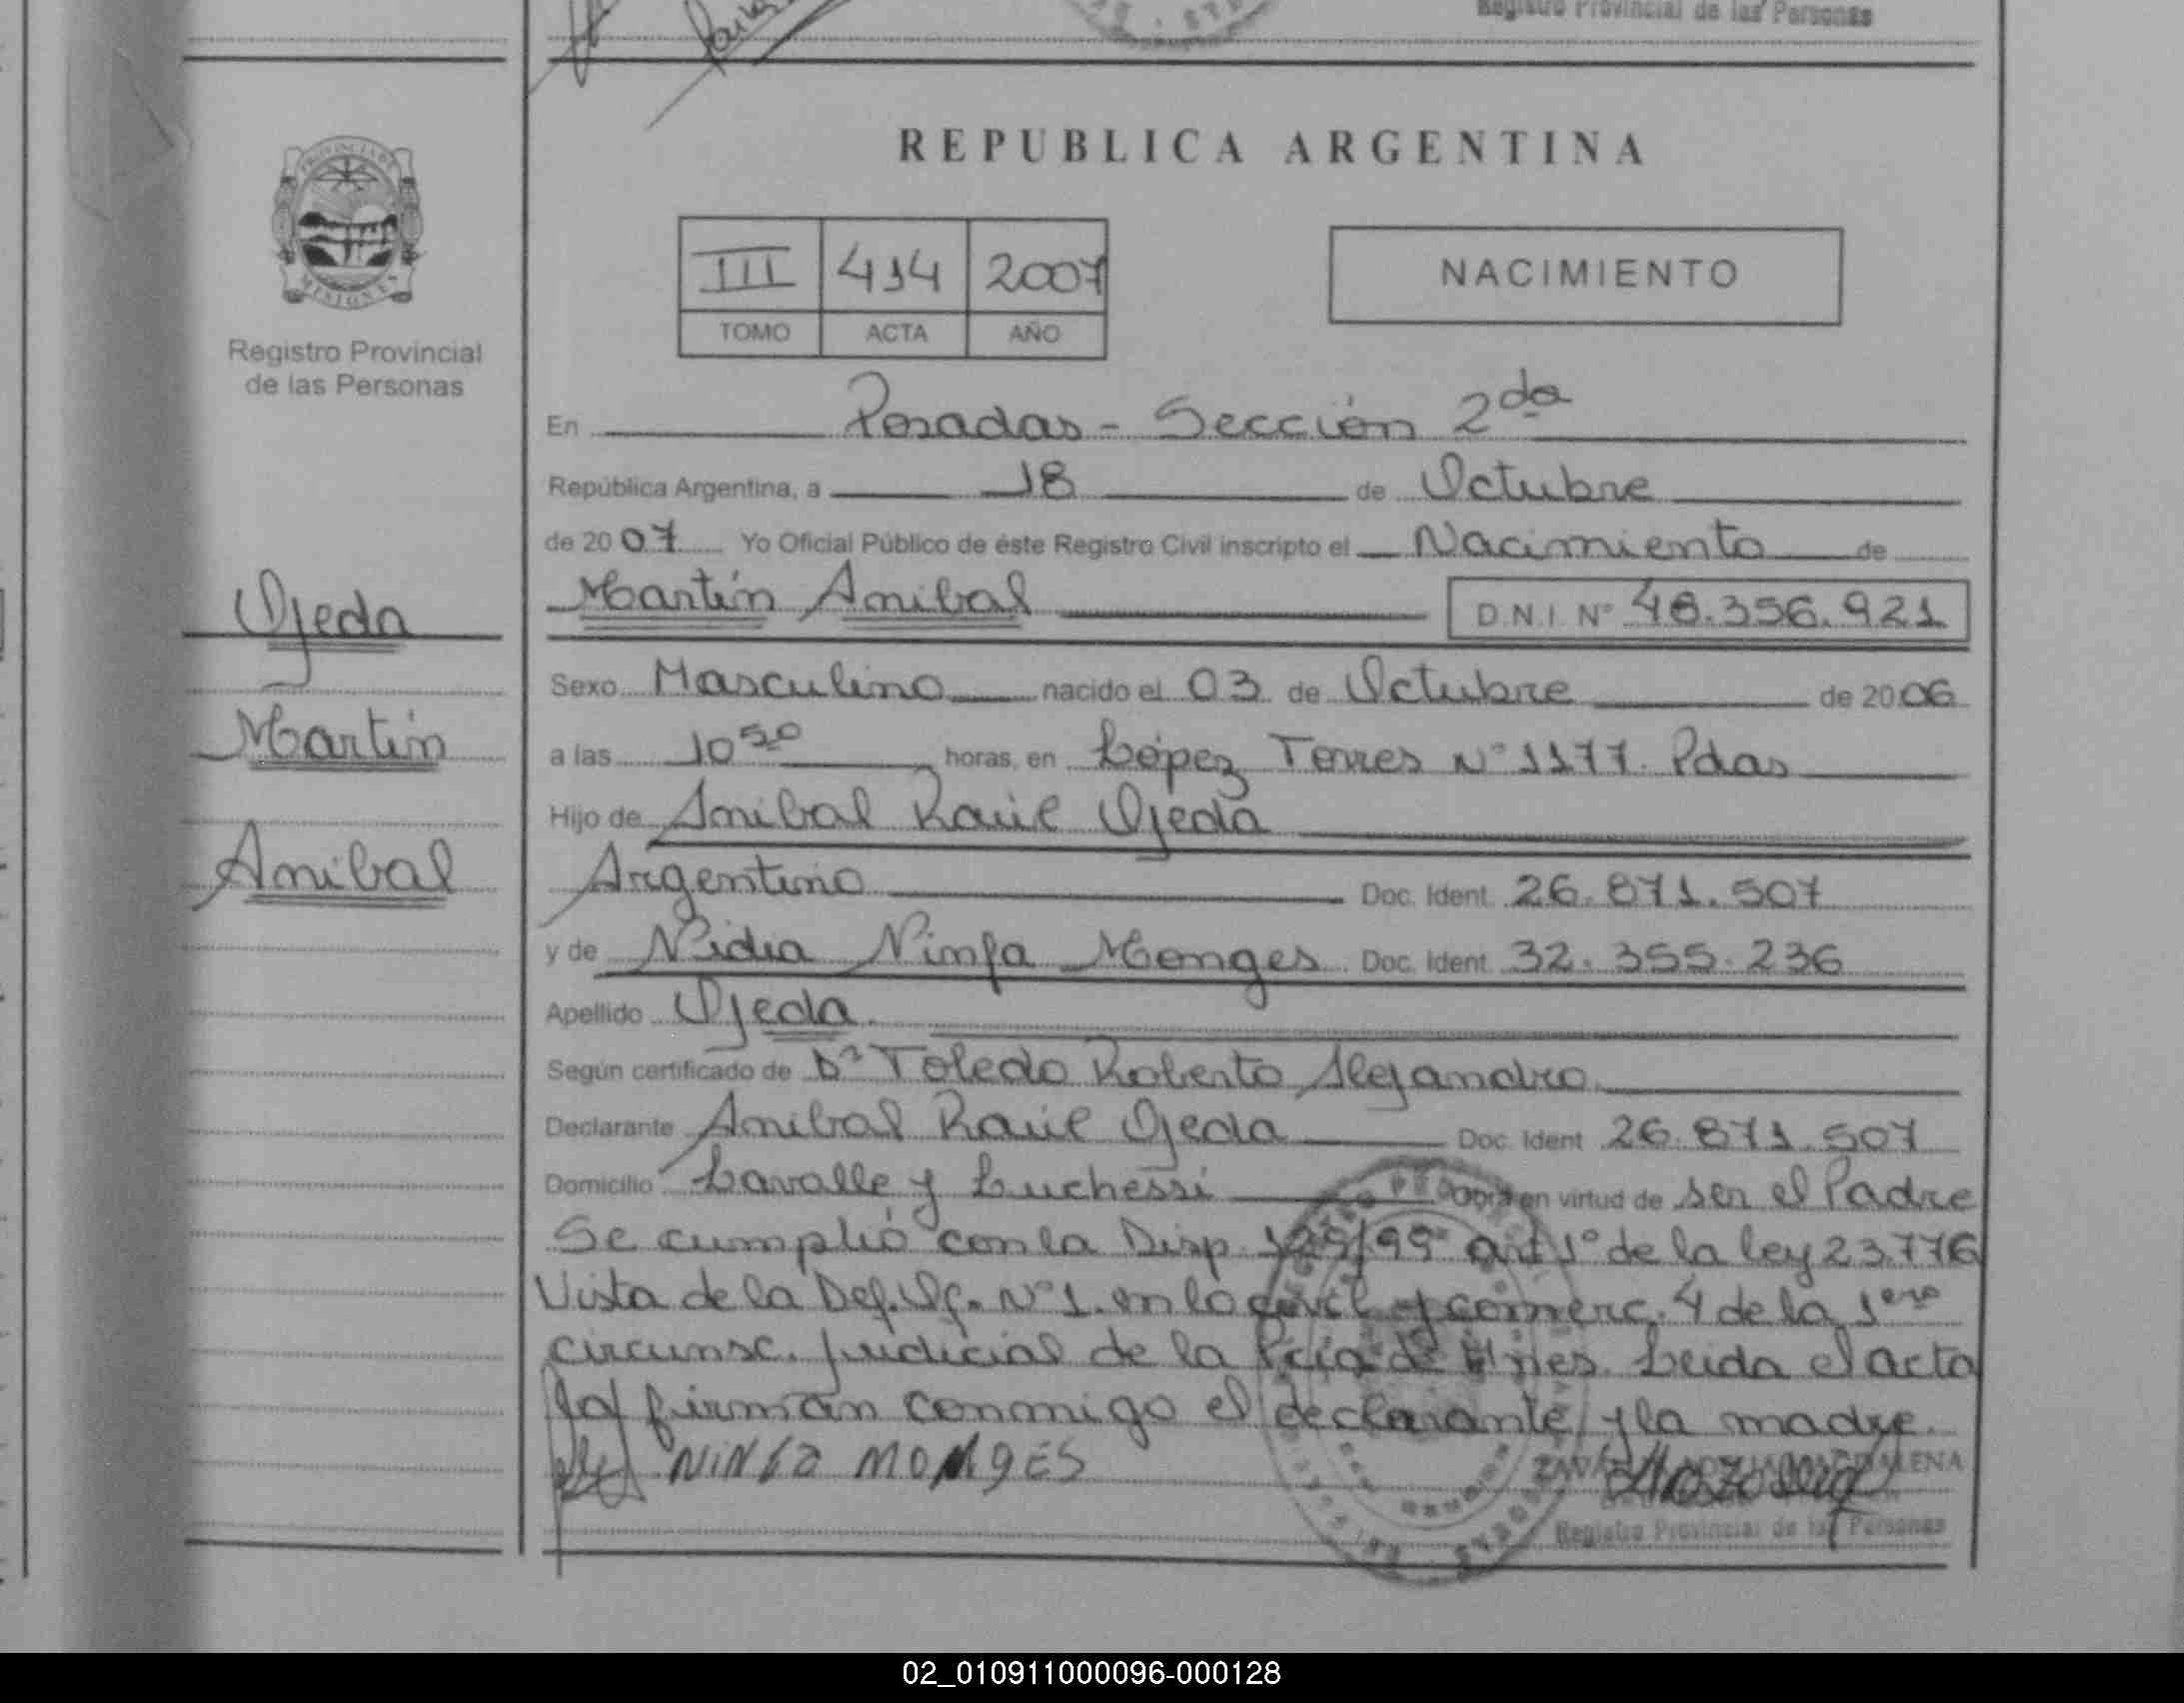 Registro Provincial de las Personas
PROVINCIA DE
MISIONES
Registro Provincial
de las Personas
Ojeda
Martín
Anibal
REPUBLICA ARGENTINA
III 414 2007
TOMO ACTA AÑO
NACIMIENTO
En Posadas - Sección 2da
República Argentina, a 18 de Octubre
de 2007 Yo Oficial Público de éste Registro Civil inscripto el Nacimiento de
Martín Anibal D.N.I. Nº 48.356.921
Sexo Masculino nacido el 03 de Octubre de 2006
a las 10 50 horas, en López Torres Nº 1177. Pdas
Hijo de Anibal Raúl Ojeda
Argentino Doc. Ident. 26.871.507
y de Nidia Ninfa Monges Doc. Ident. 32.355.236
Apellido Ojeda
Según certificado de Dr Toledo Roberto Alejandro
Declarante Anibal Raúl Ojeda Doc. Ident 26.871.507
Domicilio Lavalle y Luchessi Obra en virtud de ser el Padre
Se cumplió con la Disp. /99 art 1º de la ley 23.776
Vista de la Def. Of. Nº 1. en lo civil y comerc. 4 de la 1era
circunsc. Judicial de la Pcia de Mnes. Leida el acta
la firman conmigo el declarante y la madre.
NiNfa MONgES
Registro Provincial de las Personas
02_010911000096-000128